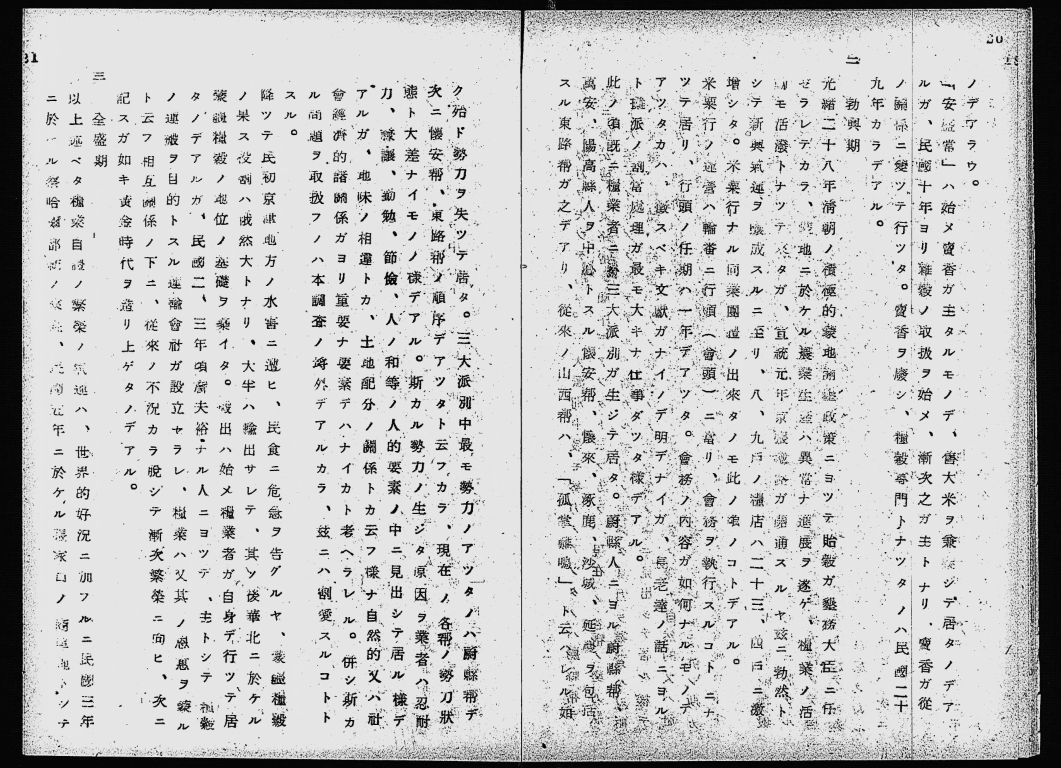 20
ノデアラウ。
「安盛常」ハ始メ賣香ガ主タルモノデ、舊大米ヲ兼ジデ居タノデア
ルガ、民國十年ヨリ雜穀ノ取扱ヲ始メ、漸次之ガ主トナリ、賣香ガ從
ノ關係ニ變ツテ行ツタ。賣香ヲ廢シ、糧穀專門トナツタノハ民國二十
九年カラデアル。
二　勃興期
光緒二十八年淸朝ノ積極的蒙地政策ニヨツテ貽穀ガ墾務大臣ニ任
ゼラレテカラ、地ニ於ケル農業生產ハ異常ナ進展ヲ遂ゲ、糧業ノ活
モ活潑トナツテタガ、宣統元年京ガ開通スルヤ玆ニ勃然ト
シテ新興氣運ヲ釀成スルニ至リ、八、九戶ノ糧店ハ二十三、四戶ニ激
增シタ。米業行ナル同業團體ノ出來タノモ此ノ頃ノコトデアル。
米業行ノ運營ハ輪番ニ行頭（會頭）ニ當リ、會務ヲ執行スルコトニナ
ツテ居リ、行頭ノ任期ハ一年デアツタ。會務ノ內容ガ如何ナルモノデ
アツタカハ、徵スベキ文獻ガナイノデ明デナイガ、長老達ノ話ニヨル
ト派ノ割當處理ガ最モ大キナ仕事ダツタ樣デアル。
此ノ頃旣ニ糧業者ニ三大派別ガ生ジテ居タ。蔚縣人ニヨル蔚縣幇、
萬安、陽高縣人ヲ中心トスル懷安幇、懷來、涿鹿、沙城、延ヲ包括
スル東路幇ガ之デアリ、從來ノ山西幇ハ、「孤掌難鳴」ト云ハレル如
21
ク殆ド勢力ヲ失ツテ居タ。三大派別中最モ勢力ノアツタノハ蔚縣幇デ
次ニ懷安幇、東路幇ノ順序デアツタト云フカラ、現在ノ各幇ノ勢力狀
態ト大差ナイモノノ樣デアル。斯カル勢力ノ生ジタ原因ヲ業者ハ忍耐
力、謙讓、勤勉、節儉、人ノ和等ノ人的要素ノ中ニ見出シテ居ル樣デ
アルガ、地味ノ相違トカ、土地配分ノ關係トカ云フ樣ナ自然的又ハ社
會經濟的諸關係ガヨリ重要ナ要素デハナイカト考ヘラレル。併シ斯カ
ル問題ヲ取扱フノハ本調査ノ埒外デアルカラ、玆ニハ割愛スルコトト
スル。
降ツテ民初京津地方ノ水害ニ遭ヒ、民食ニ危急ヲ告グルヤ、蒙疆糧穀
ノ果ス役割ハ俄然大トナリ、大半ハ輸出サレテ、其ノ後華北ニ於ケル
蒙疆糧穀ノ地位ノ基礎ヲ築イタ。輸出ハ始メ糧業者ガ自身デ行ツテ居
タノデアルガ、民國二、三年頃張夫裕ナル人ニヨツテ、主トシテ糧穀
ノ運搬ヲ目的トスル運輸會社ガ設立セラレ、糧業ハ又其ノ恩惠ヲ蒙ル
ト云フ相互關係ノ下ニ、從來ノ不況カラ脫シテ漸次繁榮ニ向ヒ、次ニ
記スガ如キ黃金時代ヲ造リ上ゲタノデアル。
三　全盛期
以上述ベタ糧業自設ノ繁榮ノ氣運ハ、世界的好況ニ加フルニ民國三年
ニ於ル察哈爾部ノ、民國五年ニ於ケル張家口ノ